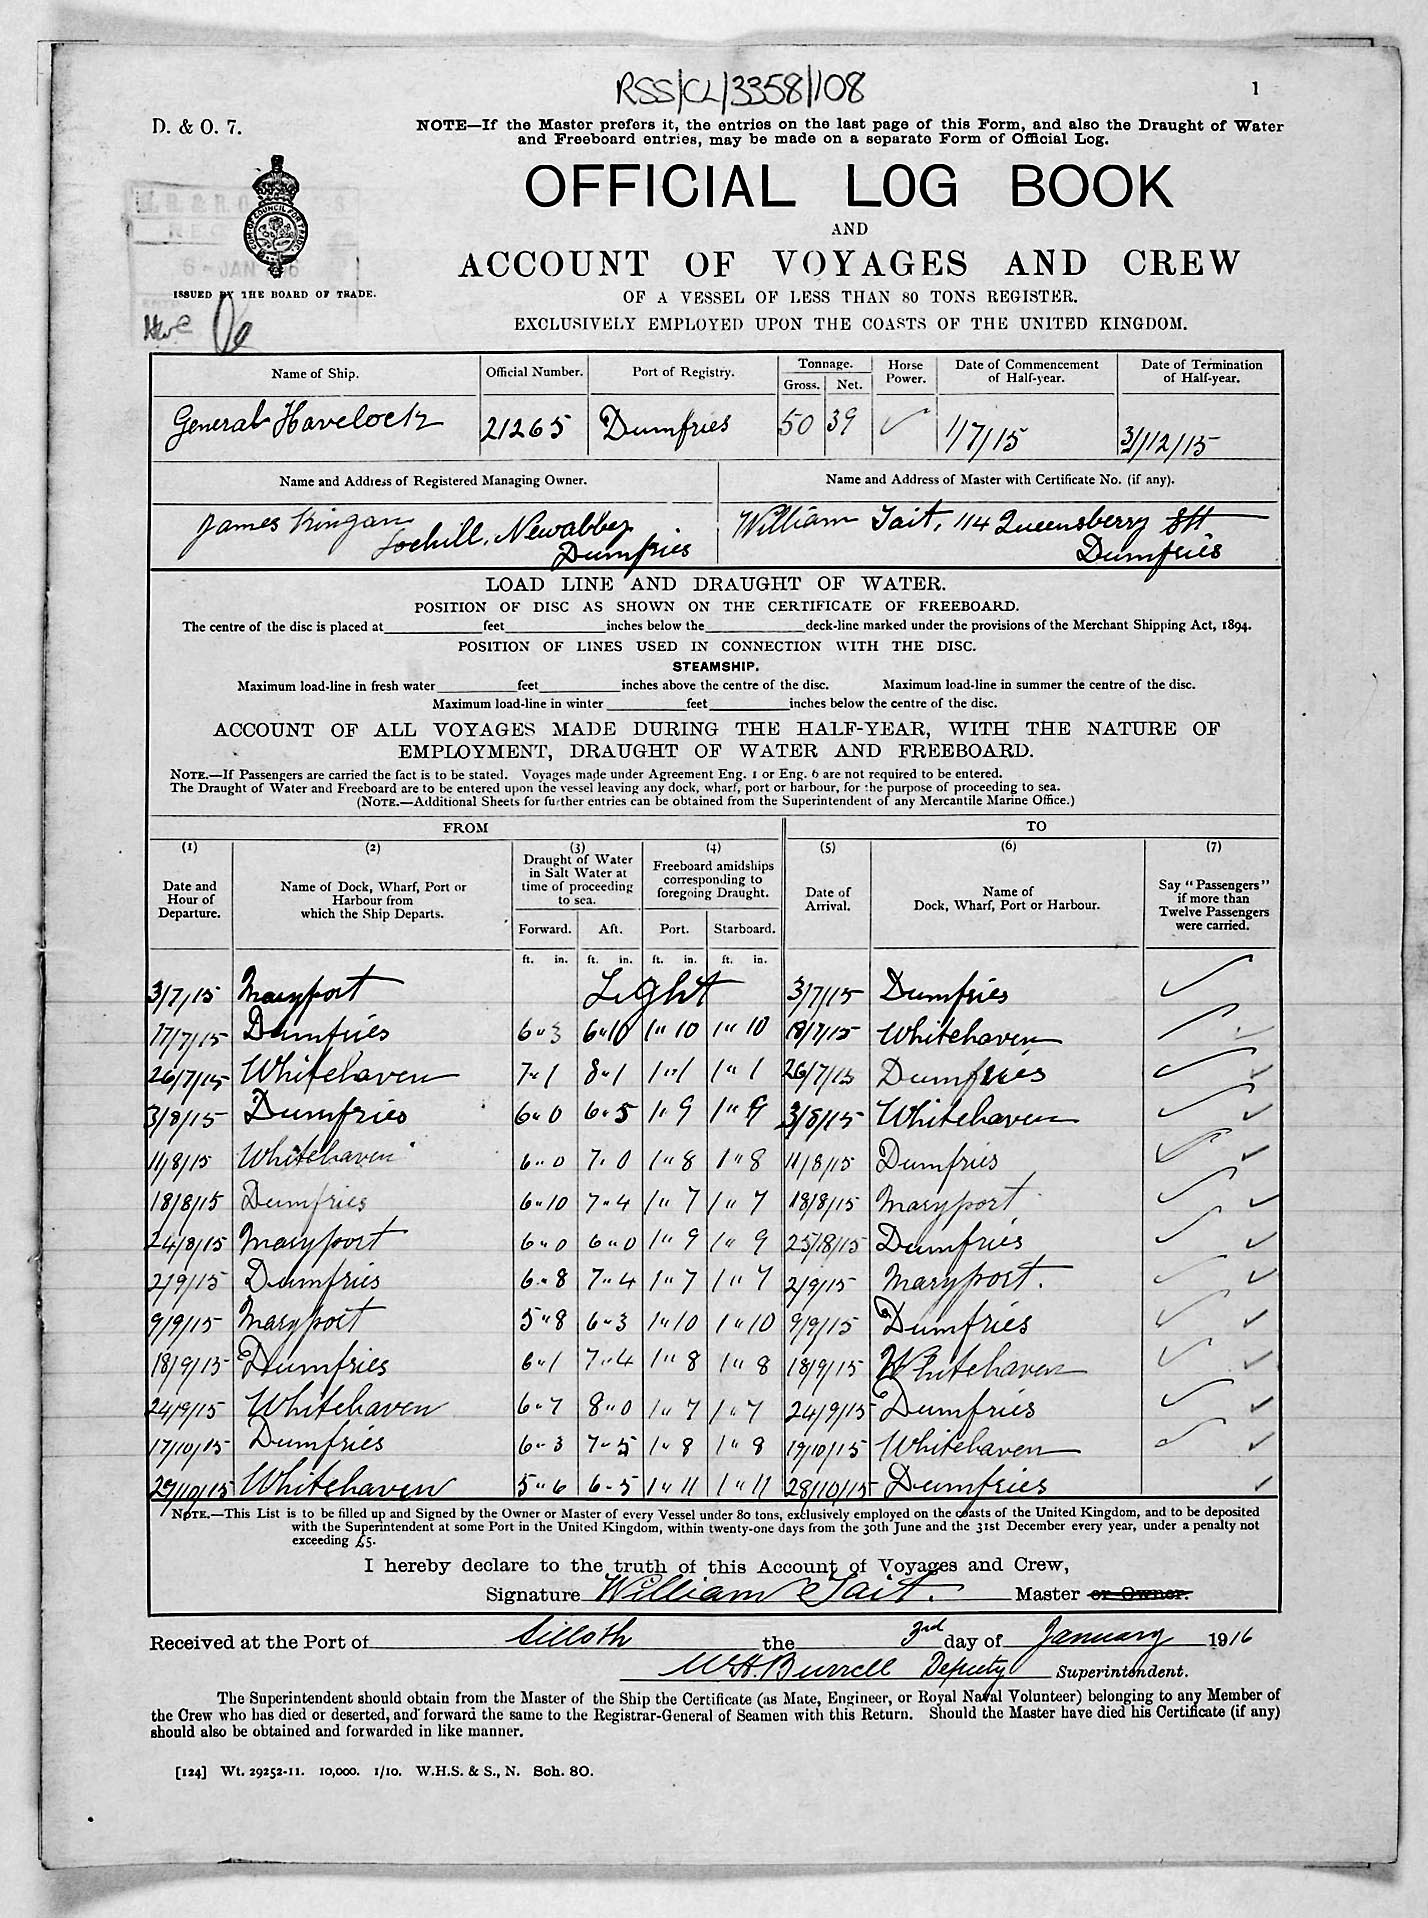 RSS/CL/3358/108
1
D. & O. 7.
NOTE—If the Master prefers it, the entries on the last page of this Form, and also the Draught of Water
and Freeboard entries, may be made on a separate Form of Official Log.
OFFICIAL LOG BOOK
AND
ACCOUNT OF VOYAGES AND CREW
OF A VESSEL OF LESS THAN 80 TONS REGISTER.
EXCLUSIVELY EMPLOYED UPON THE COASTS OF THE UNITED KINGDOM.
6-JAN
ISSUED BY THE BOARD OF TRADE.
Name of Ship. Official Number. Port of Registry. Tonnage. Gross. Net. Horse Power. Date of Commencement of Half-year. Date of Termination of Half-year.
General Havelock 21265 Dumfries 50 39 ✓ 1/7/15 31/12/15
Name and Address of Registered Managing Owner. Name and Address of Master with Certificate No. (if any).
James Kingan William Tait, 114 Queensberry Stt
Lochill, Newabbey
Dumfries Dumfries
LOAD LINE AND DRAUGHT OF WATER.
POSITION OF DISC AS SHOWN ON THE CERTIFICATE OF FREEBOARD.
The centre of the disc is placed at feet inches below the deck-line marked under the provisions of the Merchant Shipping Act, 1894.
POSITION OF LINES USED IN CONNECTION WITH THE DISC.
STEAMSHIP.
Maximum load-line in fresh water feet inches above the centre of the disc. Maximum load-line in summer the centre of the disc.
Maximum load-line in winter feet inches below the centre of the disc.
ACCOUNT OF ALL VOYAGES MADE DURING THE HALF-YEAR, WITH THE NATURE OF
EMPLOYMENT, DRAUGHT OF WATER AND FREEBOARD.
NOTE.—If Passengers are carried the fact is to be stated. Voyages made under Agreement Eng. 1 or Eng. 6 are not required to be entered.
The Draught of Water and Freeboard are to be entered upon the vessel leaving any dock, wharf, port or harbour, for the purpose of proceeding to sea.
(NOTE.—Additional Sheets for further entries can be obtained from the Superintendent of any Mercantile Marine Office.)
FROM TO
(1) (2) (3) (4) (5) (6) (7)
Date and Hour of Departure. Name of Dock, Wharf, Port or Harbour from which the Ship Departs. Draught of Water in Salt Water at time of proceeding to sea. Freeboard amidships corresponding to foregoing Draught. Date of Arrival. Name of Dock, Wharf, Port or Harbour. Say "Passengers" if more than Twelve Passengers were carried.
Forward. Aft. Port. Starboard.
ft. in. ft. in. ft. in. ft. in.
3/7/15 Maryport Light 3/7/15 Dumfries ✓
17/7/15 Dumfries 6"3 6"10 1"10 1"10 18/7/15 Whitehaven ✓ ✓
26/7/15 Whitehaven 7"1 8"1 1"1 1"1 26/7/15 Dumfries ✓ ✓
3/8/15 Dumfries 6"0 6"5 1"9 1"9 3/8/15 Whitehaven ✓ ✓
11/8/15 Whitehaven 6"0 7"0 1"8 1"8 11/8/15 Dumfries ✓ ✓
18/8/15 Dumfries 6"10 7"4 1"7 1"7 18/8/15 Maryport ✓ ✓
24/8/15 Maryport 6"0 6"0 1"9 1"9 25/8/15 Dumfries ✓ ✓
2/9/15 Dumfries 6"8 7"4 1"7 1"7 2/9/15 Maryport. ✓ ✓
9/9/15 Maryport 5"8 6"3 1"10 1"10 9/9/15 Dumfries ✓ ✓
18/9/15 Dumfries 6"1 7"4 1"8 1"8 18/9/15 Whitehaven ✓ ✓
24/9/15 Whitehaven 6"7 8"0 1"7 1"7 24/9/15 Dumfries ✓ ✓
17/10/15 Dumfries 6"3 7"5 1"8 1"8 19/10/15 Whitehaven ✓ ✓
27/10/15 Whitehaven 5"6 6"5 1"11 1"11 28/10/15 Dumfries ✓
NOTE.—This List is to be filled up and Signed by the Owner or Master of every Vessel under 80 tons, exclusively employed on the coasts of the United Kingdom, and to be deposited
with the Superintendent at some Port in the United Kingdom, within twenty-one days from the 30th June and the 31st December every year, under a penalty not
exceeding £5.
I hereby declare to the truth of this Account of Voyages and Crew,
Signature William Tait. Master or Owner.
Received at the Port of Silloth the 3rd day of January 1916
W H. Burrell Deputy Superintendent.
The Superintendent should obtain from the Master of the Ship the Certificate (as Mate, Engineer, or Royal Naval Volunteer) belonging to any Member of
the Crew who has died or deserted, and forward the same to the Registrar-General of Seamen with this Return. Should the Master have died his Certificate (if any)
should also be obtained and forwarded in like manner.
[124] Wt. 29252-11. 10,000. 1/10. W.H.S. & S., N. Sch. 80.